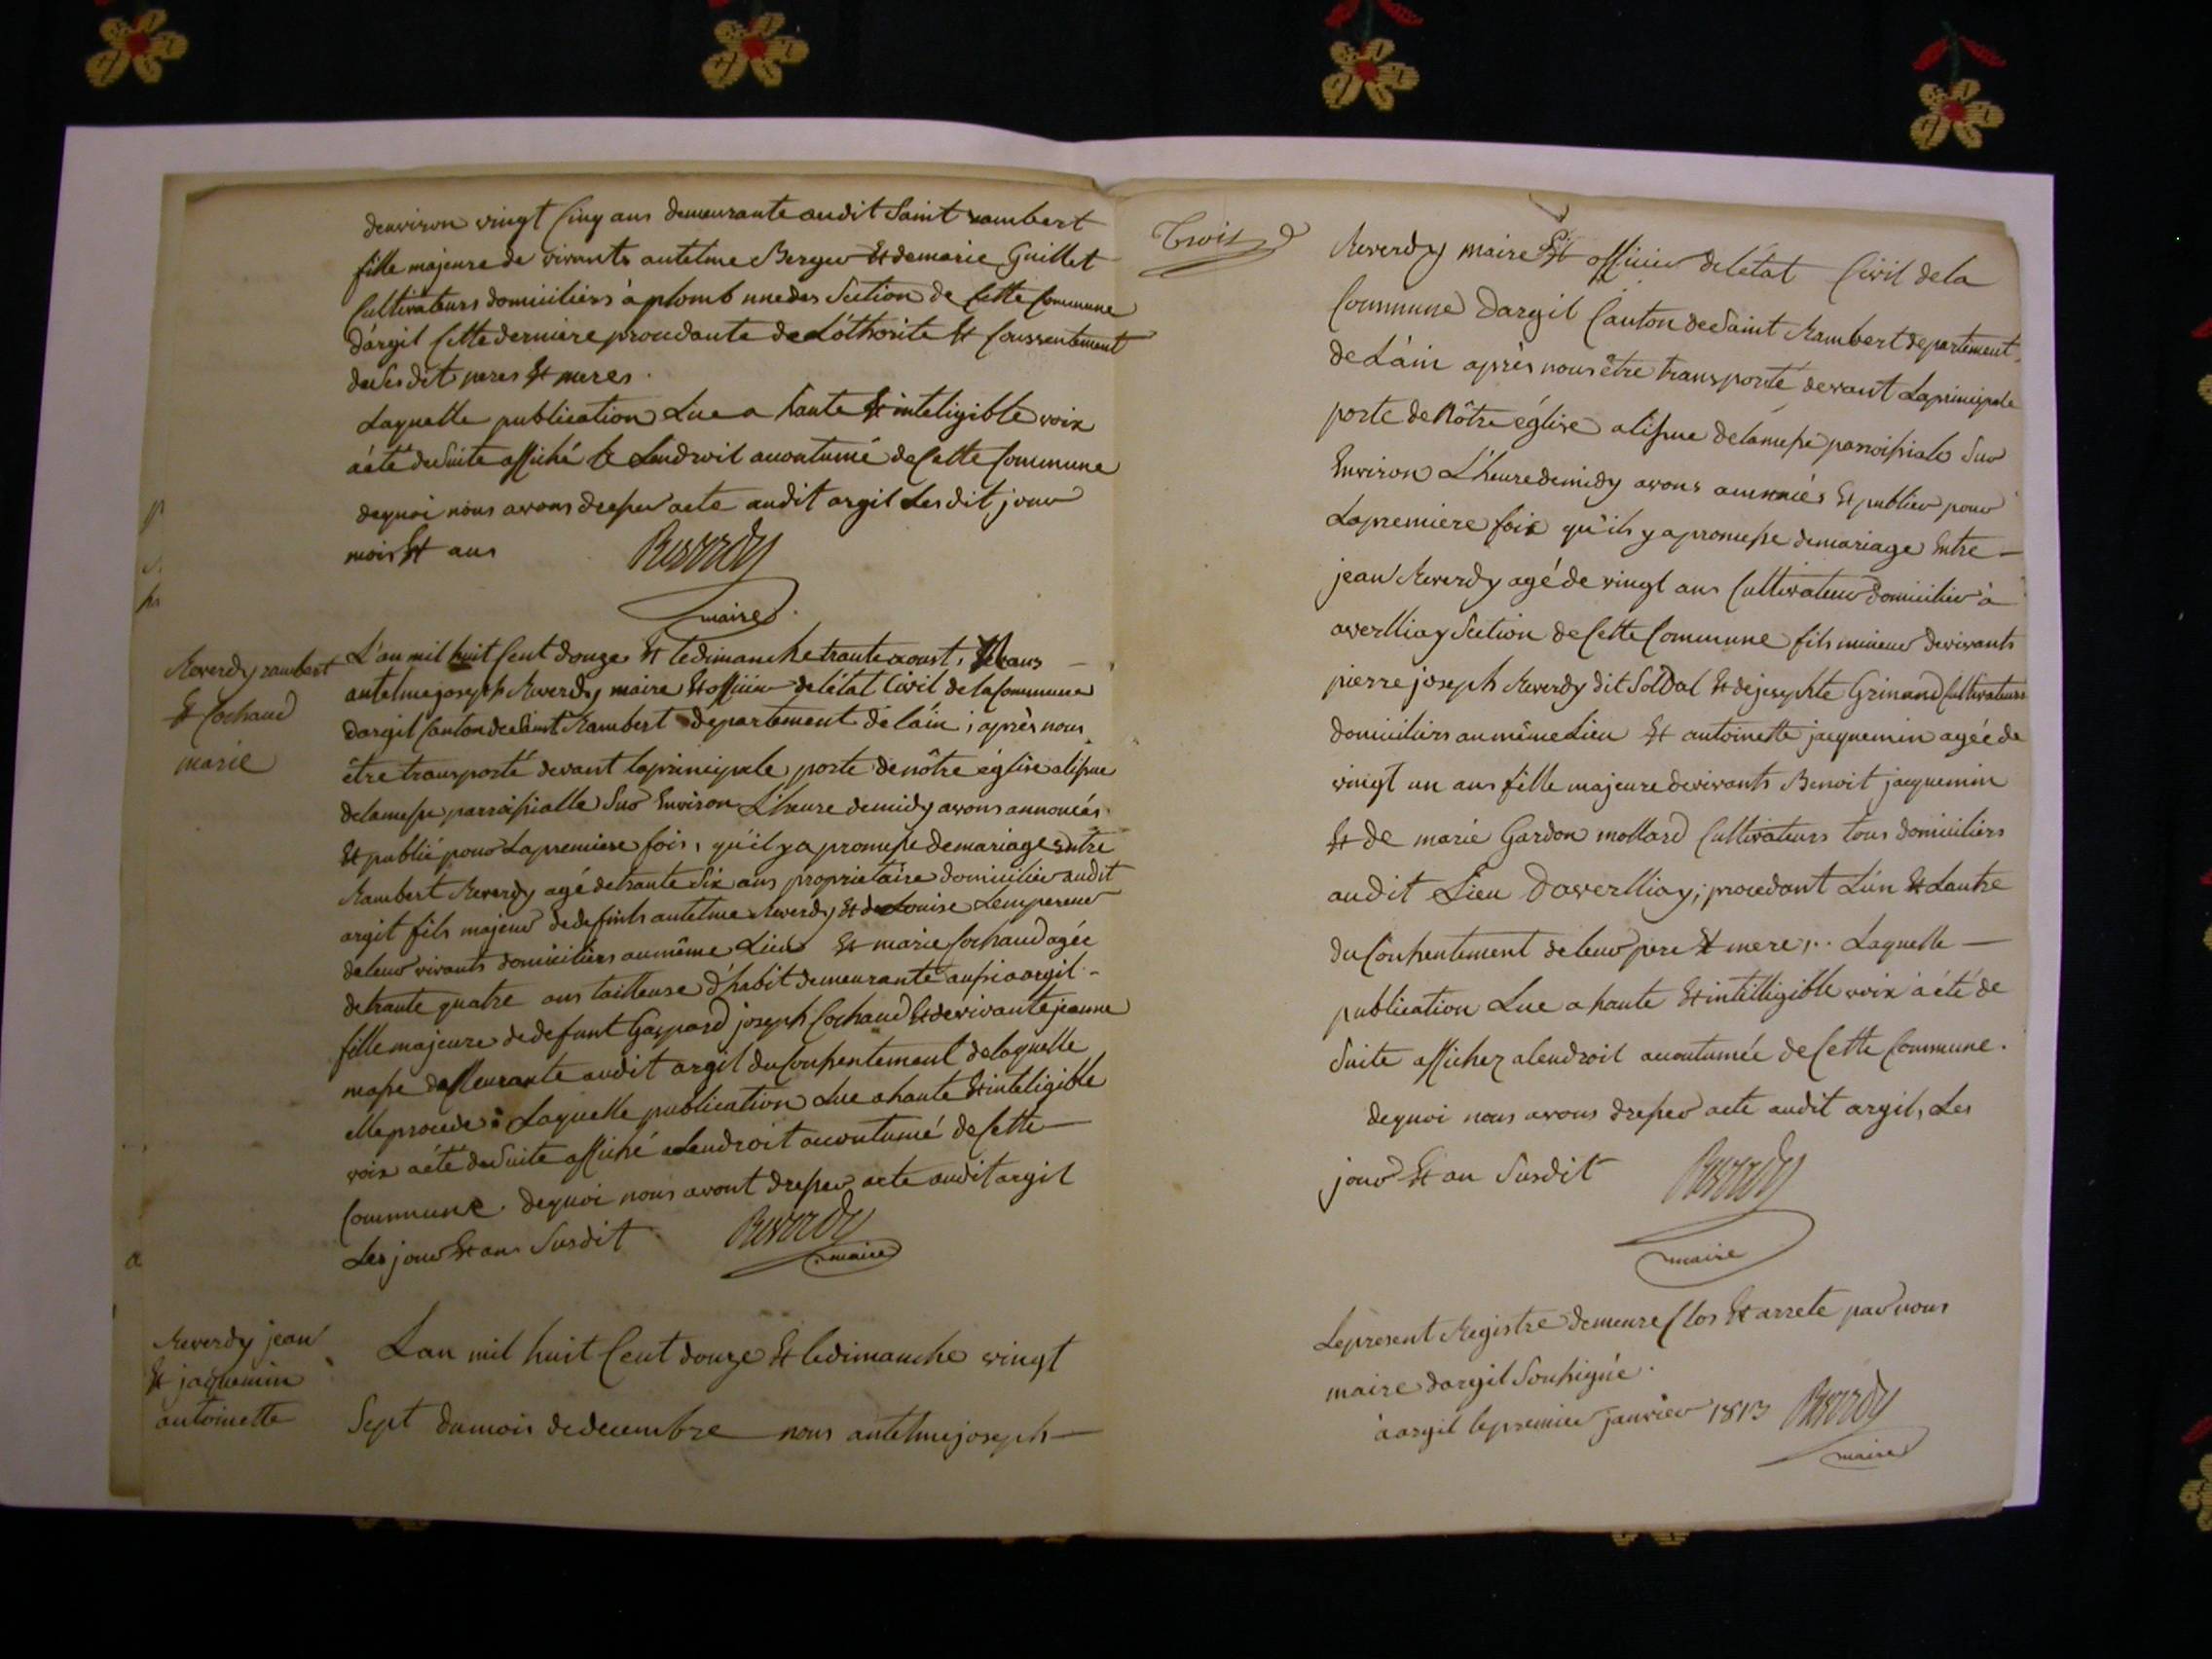 denviron vingt Cinq ans demeurante audit Saint rambert
fille majeure de vivants antelme Berger Et de marie Guillet
Cultivateurs domiciliers à plomb une des Section de Cette Commune
dárgil Cette derniere procedante de Lóthorite Et Conssentement
de Ses dit peres Et meres.
Laquelle publication Lue a haute Et inteligible voix
áété de Suite affiché Lendroit acoutumé de Cette Commune
dequoi nous avons dresser acte audit argil Les dit jour
mois Et ans
Reverdy
maire
Reverdy rambert
Et Cochaud
marie
L'an mil huit Cent douze Et le dimanche trante aoust,
antelme joseph Reverdy maire Et officier de létat Civil de la Commune
dargil Canton de Saint Rambert departement de láin; après nous
être transporté devant la principale porte de nôtre église a lissue
de la messe parroissialle Sur Environ L'heure de midy avons annoncés
Et publié pour La premiere fois, qu'il y a promesse de mariage Entre
Rambert Reverdy agé de trante Six ans proprietaire domicilier audit
argil fils majeur de defints antelme Reverdy Et de Louise Lempereur
de leur vivants domiciliers au même Lieu Et marie Cochaud agée
de trante quatre ans tailleuse d'habit demeurante aussi a argil
fille majeure de defunt Gaspard joseph Cochaud Et de vivante jeanne
masse demeurante audit argil du Conssentement de laquelle
elle procede: Laquelle publication Lue a haute Et inteligible
voix aété de Suite affiché a Lendroit acoutumé de Cette
Commune. dequoi nous avont dresser acte audit argil
Les jour Et an Susdit
Reverdy
maire
Reverdy jean
Et jaquemin
antoinette
Lan mil huit Cent douze Et le dimanche vingt
Sept du mois de decembre nous antelme joseph
Trois
Reverdy maire Et officier de létat Civil de la
Commune Dargil Canton de Saint Rambert departement
de Láin après nous être transporté devant La principale
porte de Nôtre église a lissue de la messe parroissiale Sur
Environ L'heure de midy avons Et publier pour
La premiere fois qu'ils y a promesse de mariage Entre
jean Reverdy agé de vingt ans Cultivateur domicilier à
averlliay Section de Cette Commune fils mineur de vivants
pierre joseph Reverdy dit Soldal Et de josephte Grinand Cultivateurs
domiciliers au même Lieu Et antoinette jacquemin agée de
vingt un ans fille majeure de vivants Benoit jacquemin
Et de marie Gardon mollard Cultivateurs tous domiciliers
audit Lieu Daverlliay; procedant Lún Et Lautre
du Conssentement de leur pere Et mere;.. Laquelle
publication Lue a haute Et intelligible voix à été de
Suite affichez a lendroit acoutumée de Cette Commune.
dequoi nous avons dresser acte audit argil, Les
jour Et an Susdit
Reverdy
maire
Le present Registre demeure Clos Et arrete par nous
maire dargil Soussignée.
à argil le premier janvier 1813 Reverdy
maire